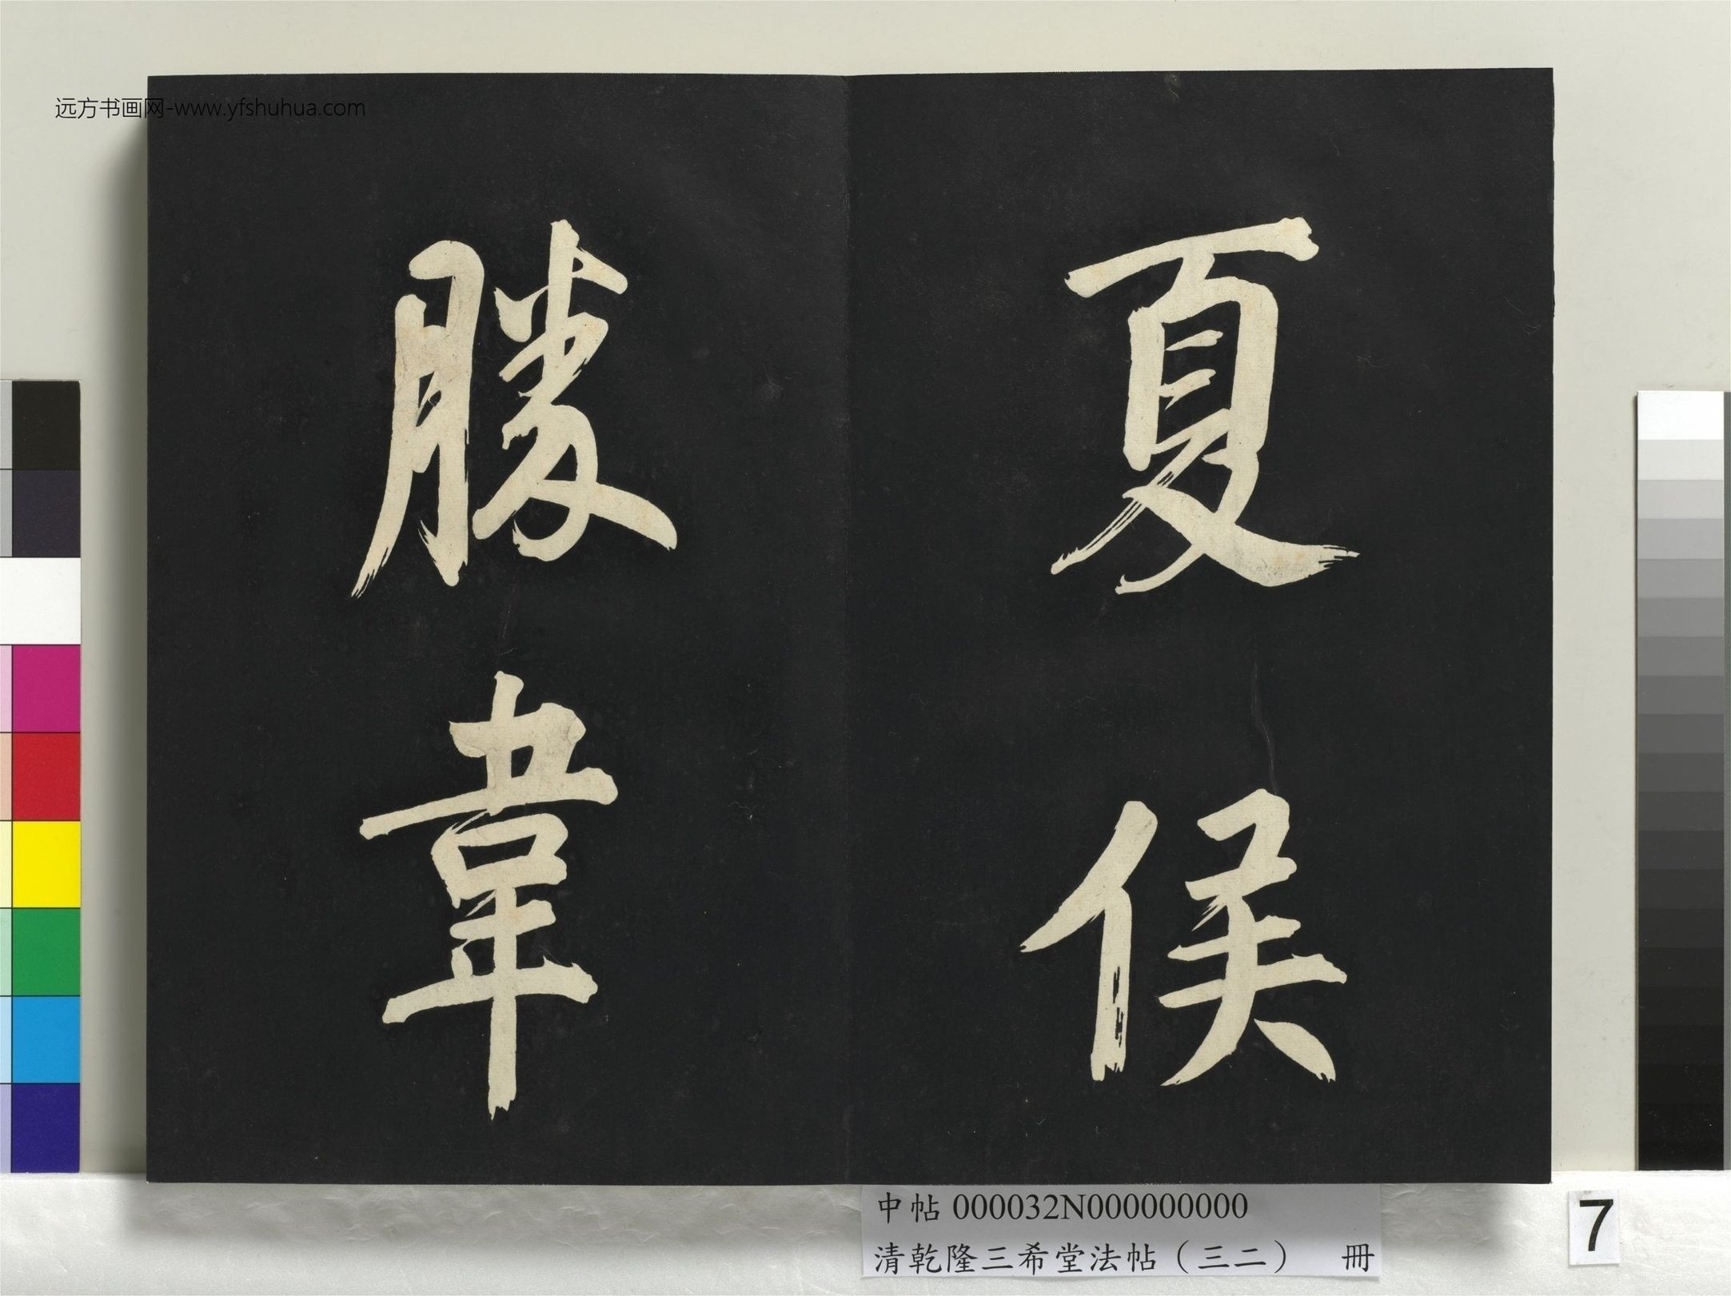 远方书画网-www.yfshuhua.com
夏侯
勝韋
中帖 000032N000000000
清乾隆三希堂法帖（三二） 冊
7